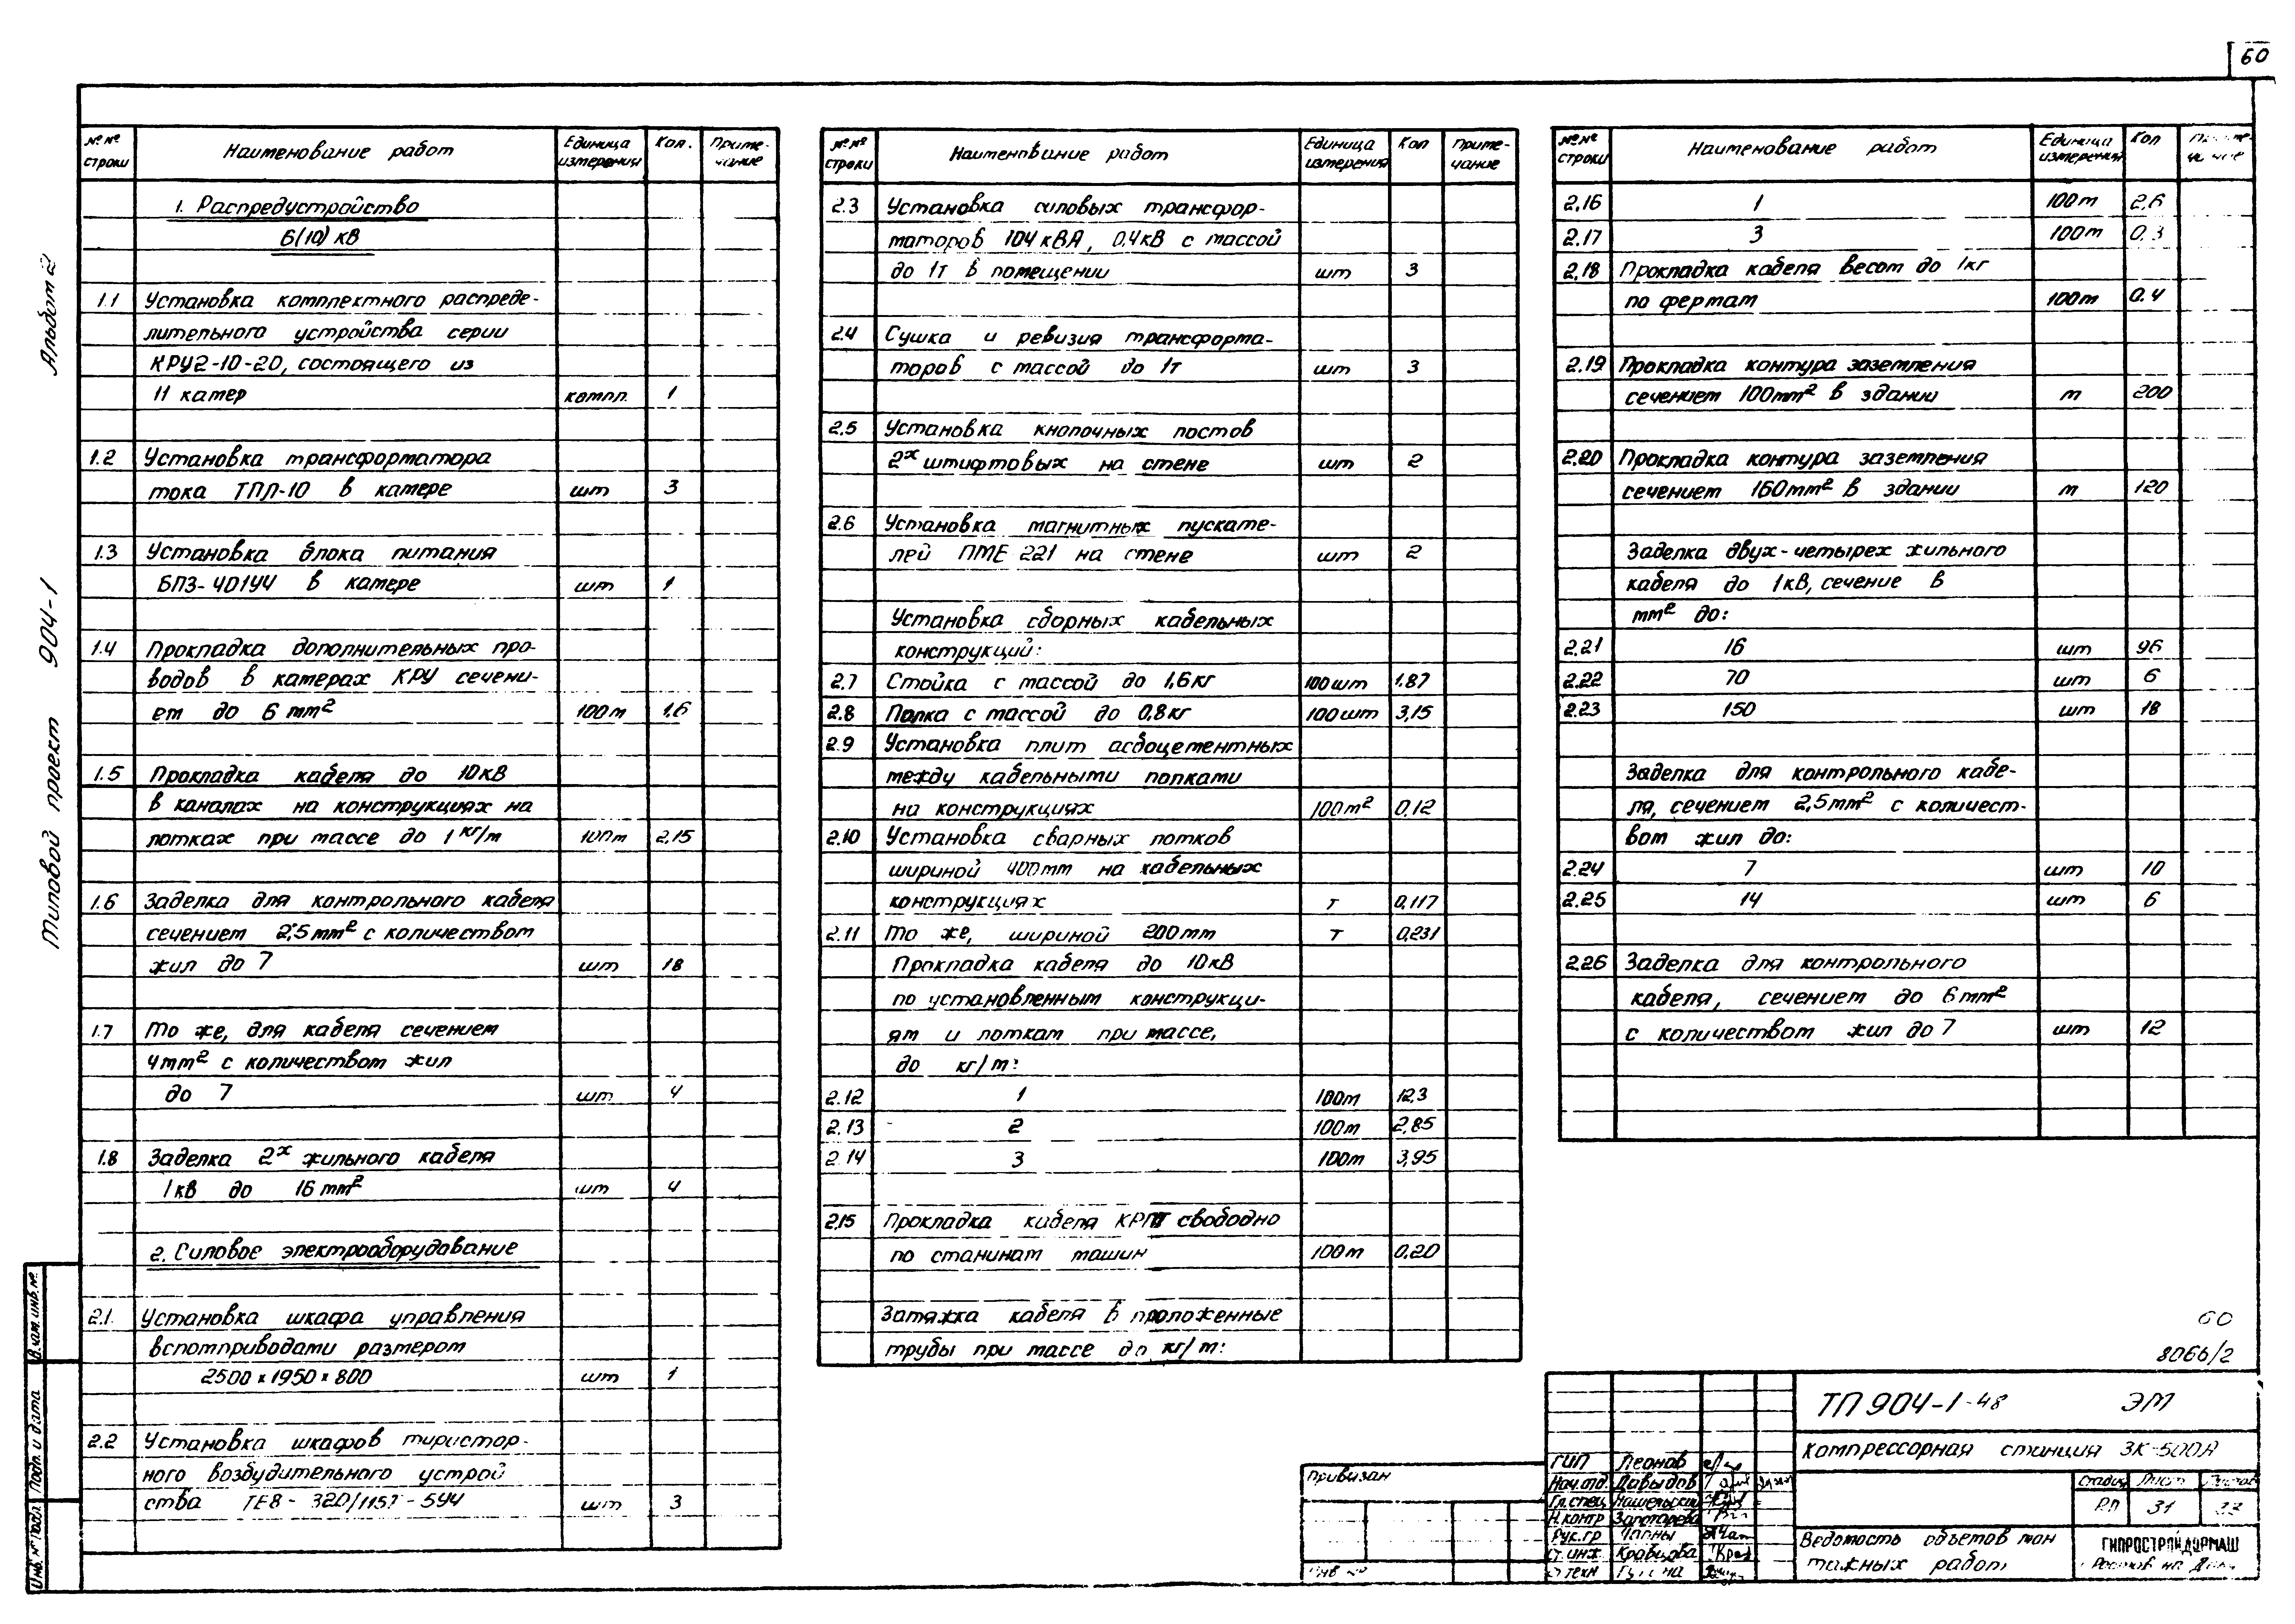 60
№№ строки Наименование работ Единица измерения Кол. Приме-чание
1. Распредустройство
6(10) кВ
1.1 Установка комплектного распреде-
лительного устройства серии
КРУ2-10-20, состоящего из
11 камер компл. 1
1.2 Установка трансформатора
тока ТПЛ-10 в камере шт 3
1.3 Установка блока питания
БПЗ-401У4 в камере шт 1
1.4 Прокладка дополнительных про-
водов в камерах КРУ сечени-
ем до 6 мм² 100м 1,6
1.5 Прокладка кабеля до 10кВ
в каналах на конструкциях на
лотках при массе до 1 кг/м 100м 2,15
1.6 Заделка для контрольного кабеля
сечением 2,5 мм² с количеством
жил до 7 шт 18
1.7 То же, для кабеля сечением
4мм² с количеством жил
до 7 шт 4
1.8 Заделка 2х жильного кабеля
1кв до 16 мм² шт 4
2. Силовое электрооборудование
2.1. Установка шкафа управления
вспомприводами размером
2500×1950×800 шт 1
2.2 Установка шкафов тиристор-
ного возбудительного устрой
ства ТЕ8-320/115Т-5У4 шт 3
№№ строки Наименование работ Единица измерения Кол Приме-чание
2.3 Установка силовых трансфор-
маторов 104кВА, 0.4кВ с массой
до 1т в помещении шт 3
2.4 Сушка и ревизия трансформа-
торов с массой до 1т шт 3
2.5 Установка кнопочных постов
2х штифтовых на стене шт 2
2.6 Установка магнитных пускате-
лей ПМЕ 221 на стене шт 2
Установка сборных кабельных
конструкций:
2.7 Стойка с массой до 1,6кг 100шт 1.87
2.8 Полка с массой до 0,8кг 100шт 3,15
2.9 Установка плит асбоцементных
между кабельными полками
на конструкциях 100м² 0.12
2.10 Установка сварных лотков
шириной 400мм на кабельных
конструкциях т 0,117
2.11 То же, шириной 200мм т 0,231
Прокладка кабеля до 10кВ
по установленным конструкци-
ям и лоткам при массе,
до кг/м:
2.12 1 100м 12.3
2.13 2 100м 2,85
2.14 3 100м 3,95
2.15 Прокладка кабеля КРПТ свободно
по станинам машин 100м 0,20
Затяжка кабеля в проложенные
трубы при массе до кг/м:
№№ строки Наименование работ Единица измерения Кол
2.16 1 100м 2.6
2.17 3 100м 0.3
2.18 Прокладка кабеля весом до 1кг
по фермам 100м 0.4
2.19 Прокладка контура заземления
сечением 100мм² в здании м 200
2.20 Прокладка контура заземления
сечением 160мм² в здании м 120
Заделка двух-четырех жильного
кабеля до 1кВ, сечение в
мм² до:
2.21 16 шт 96
2.22 70 шт 6
2.23 150 шт 18
Заделка для контрольного кабе-
ля, сечением 2,5мм² с количест-
вом жил до:
2.24 7 шт 10
2.25 14 шт 6
2.26 Заделка для контрольного
кабеля, сечением до 6мм²
с количеством жил до 7 шт 12
60
8066/2
ТП 904-1-48 ЭМ
Компрессорная станция 3К-500А
Стадия Лист
РП 31
Ведомость объемов мон
тажных работ
ГИПРОСТРОЙДОРМАШ
Ростов на
ГИП Леонов
Нач.отд. Давыдов
Гл.спец.
Н.контр Золотарева
Рук.гр
ст.инж Кравцова
ст.техн
Привязан
Инв №
Типовой проект 904-1 Альбом 2
Взам.инв.№
Подп. и дата
Инв.№ подл.